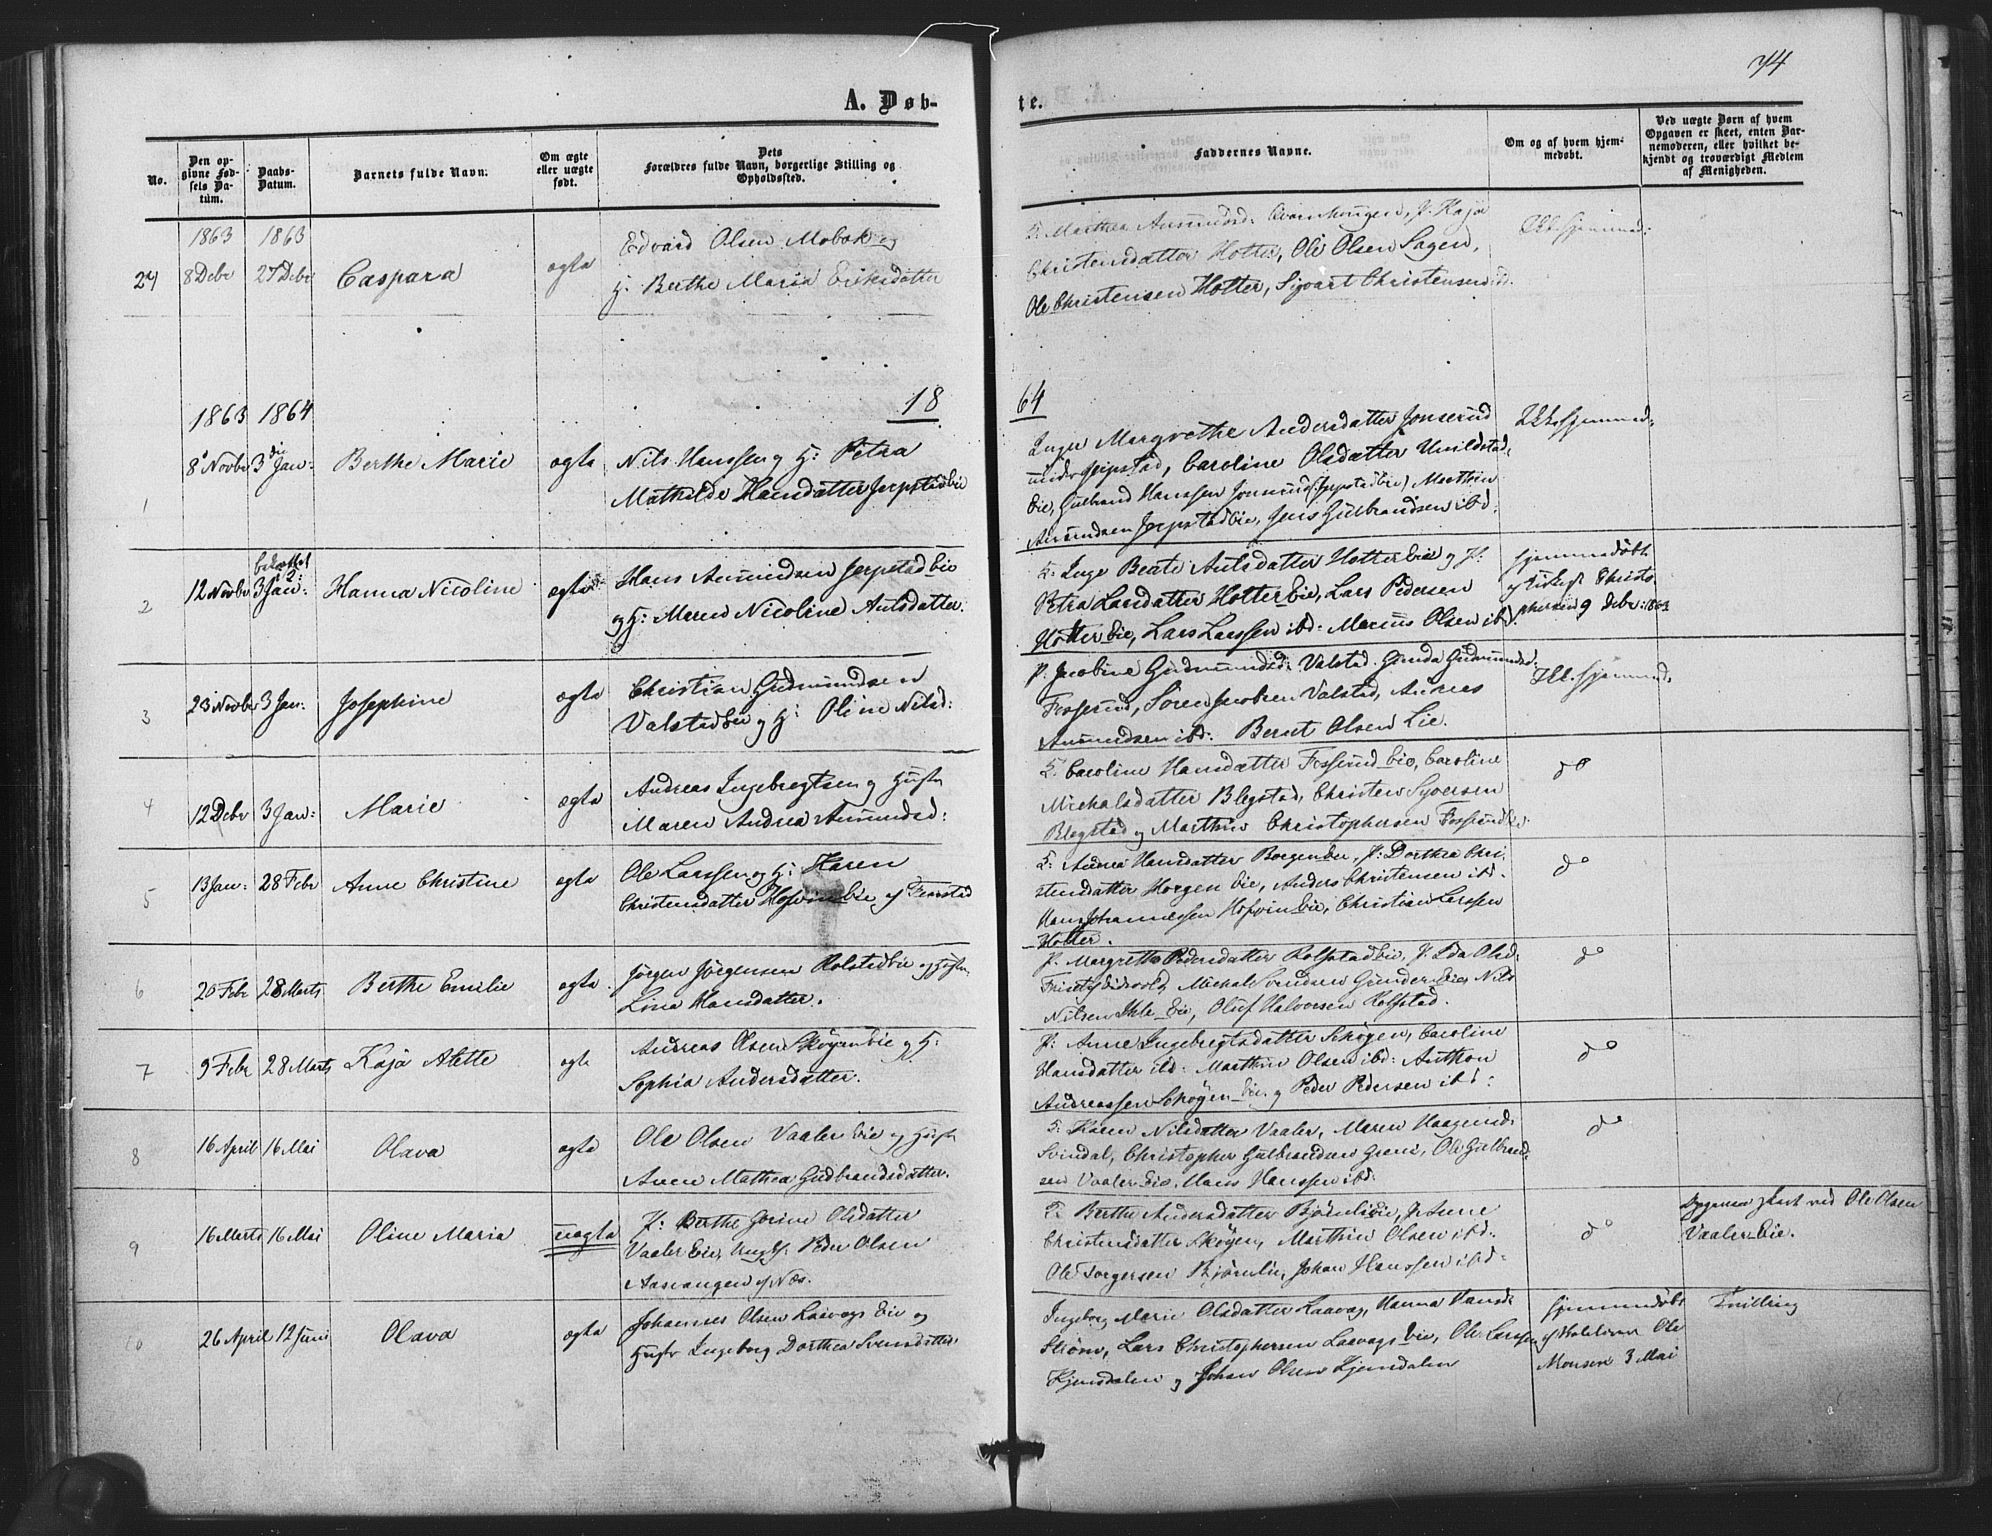 74
A. Døb-
te.
No.
Den op-
givne Fød-
sels Da-
tum.
Daabs-
Datum.
Barnets fulde Navn.
Om ægte
eller uægte
født.
Dets
Forældres fulde Navn, borgerlige Stilling og
Opholdssted.
Faddernes Navne.
Om og af hvem hjem-
medøbt.
Ved uægte Børn af hvem
Opgaven er skeet, enten Bar-
nemoderen, eller hvilket be-
kjendt og troværdigt Medlem
af Menigheden.
1863 1863
24 8 Debr 27 Debr Caspara ægte
Edvard Olsen Mobæk og
H. Berthe Maria Eriksdatter
Marthea Amundsd: P. Kaja
Christensdatter Hotter, Ole Olsen Sagen,
Ole Christensen Hotter, Sigvart Christensen ibd.
Ikke hjemmed:
1863 1864
18
64
1 8 Novbr 3die Jan: Berthe Marie ægte
Nils Hanssen og H: Petra
Mathilde Hansdatter Jerpstadeie
Inger Margrethe Andersdatter Jonserud
under Jerpstad, Caroline Olsdatter
Eie, Gulbrand Hanssen Jonserud (Jerpstadeie) Marthin
Amundsen Jerpstadeie, Jens Gulbrandsen ibd.
Ikke hjemmed:
2 12 Novbr 3 Jan: Hanna Nicoline ægte
Hans Amundsen Jerpstad eie
og H: Maren Nicoline Antsdatter.
Inge Beate Antsdatter Hottereie og P:
Petra Larsdatter Hottereie, Lars Pedersen
Hotter Eie, Lars Larssen ibd: Marius Olsen ibd.
hjemmedøbt
af Christo
phersen 9 Debr: 1863
3 23 Novbr 3 Jan: Josephine ægte
Christian Gudmundsen
Valstadeie og H: Oline Nilsd:
P. Jacobine Gudmundsd: Valstad. Gunda Gudmundsd.
Fosserud, Søren Jacobsen Valstad, Andreas
Amundsen ibd: Bernt Olsen Lie.
Ikke hjemmed.
4 12 Debr 3 Jan: Marie ægte
Andreas Ingebregtsen og Hustr
Maren Andrea Amundsd:
Caroline Hansdatter Fosserud eie, Caroline
Michalsdatter Blegstad, Christen Syversen
Blegstad og Marthin Christophersen Fosserud
do
5 13 Jan: 28 Febr Anne Christine ægte
Ole Larssen og H: Karen
Christensdatter Hofvin Eie
Andrea Hansdatter Borgen eie, P: Dorthea Chri-
stensdatter Horgen Eie, Anders Christensen ibd.
Hans Johannessen Hofvin Eie, Christian Larssen
Hotter.
do
6 20 Febr 28 Marts Berthe Emilie ægte
Jørgen Jørgensen Rolstadeie og Hustr.
Lina Hansdatter.
P. Margrethe Pedersdatter Rolfstadeie, P. Ida Olsd:
Michal Svendsen Gunder Eie, Nils
Nilsen Ihle Eie, Oluf Halvorsen Rolfstad.
do
7 9 Febr 28 Marts Kaja Alette ægte
Andreas Olsen Skøyen Eie og H:
Sophia Andersdatter.
P: Anne Ingebregtsdatter Skøyen, Caroline
Hansdatter ibd: Marthin Olsen ibd: Anthon
Andreassen Skøyen Eie og Peder Pedersen ibd:
do
8 16 April 16 Mai Olava ægte
Ole Olsen Vaaler Eie og Hustr
Anne Mathea Gudbrandsdatter.
Karen Nilsdatter Vaaler, Maren Haagensd:
Svindal, Christopher Gulbrandsen Greni, Ole Gulbrand-
sen Vaaler Eie, Hans Hanssen ibd.
do
9 16 Marts 16 Mai Oline Maria uægte
P: Berthe Gorine Olsdatter
Vaaler Eie, Ungk. Peder Olsen
Aasvangen af Næs.
Berthe Andersdatter Bjørnlieie, P. Anne
Christensdatter Skøyen, Marthin Olsen ibd.
Ole Torgersen Bjørnli, Johan Hanssen ibd.
do
Opgaven skeet ved Ole Olsen
Vaaler Eie.
10 26 April 12 Juni Olava ægte
Johannes Olsen Laavags Eie og
Hustr Ingeborg Dorthea Svensdatter
Ingeborg Marie Olsdatter Laavag, Hanna Hansd:
Strøm, Lars Christophersen Laavags Eie, Ole Larssen
Kjensdalen og Johan Olsen Kjensdalen
hjemmedøbt
af Ole
Monsen 3 Mai
Tvilling